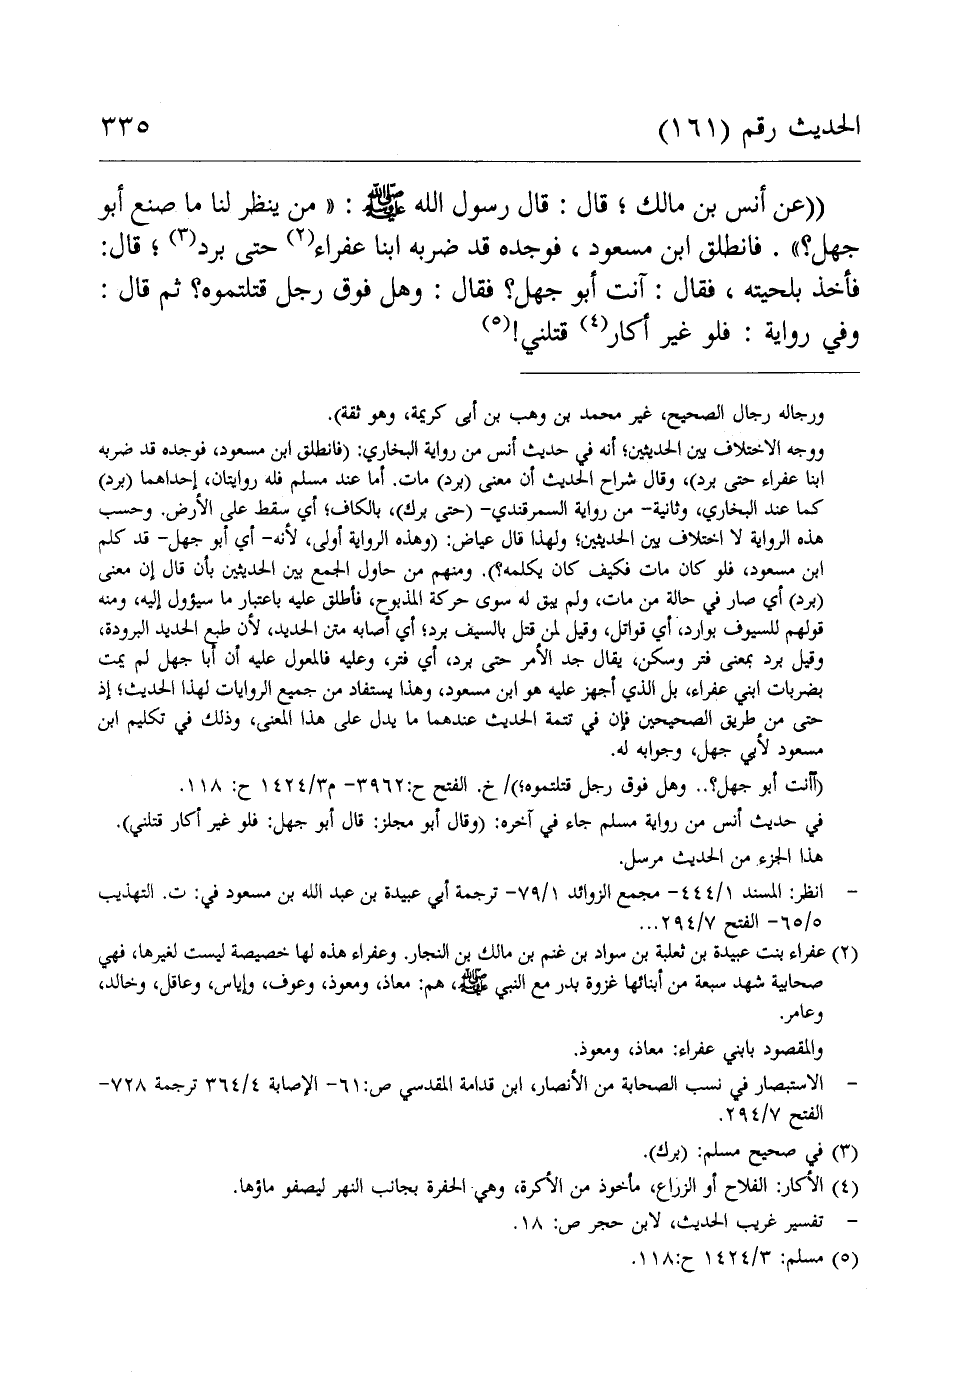 الحديث رقم (١٦١) ٣٣٥
((عن أنس بن مالك ؛ قال : قال رسول الله ﷺ : « من ينظر لنا ما صنع أبو
جهل؟» . فانطلق ابن مسعود ، فوجده قد ضربه ابنا عفراء(٢) حتى برد(٣) ؛ قال:
فأخذ بلحيته ، فقال : آنت أبو جهل؟ فقال : وهل فوق رجل قتلتموه؟ ثم قال :
وفي رواية : فلو غير أكار(٤) قتلني!(٥)
ورجاله رجال الصحيح، غير محمد بن وهب بن أبى كريمة، وهو ثقة).
ووجه الاختلاف بين الحديثين؛ أنه في حديث أنس من رواية البخاري: (فانطلق ابن مسعود، فوجده قد ضربه
ابنا عفراء حتى برد)، وقال شراح الحديث أن معنى (برد) مات. أما عند مسلم فله روايتان، إحداهما (برد)
كما عند البخاري، وثانية- من رواية السمرقندي- (حتى برك)، بالكاف؛ أي سقط على الأرض. وحسب
هذه الرواية لا اختلاف بين الحديثين؛ ولهذا قال عياض: (وهذه الرواية أولى، لأنه- أي أبو جهل- قد كلم
ابن مسعود، فلو كان مات فكيف كان يكلمه؟). ومنهم من حاول الجمع بين الحديثين بأن قال إن معنى
(برد) أي صار في حالة من مات، ولم يبق له سوى حركة المذبوح، فأطلق عليه باعتبار ما سيؤول إليه، ومنه
قولهم للسيوف بوارد، أي قواتل، وقيل لمن قتل بالسيف برد؛ أي أصابه متن الحديد، لأن طبع الحديد البرودة،
وقيل برد بمعنى فتر وسكن، يقال جد الأمر حتى برد، أي فتر، وعليه فالمعول عليه أن أبا جهل لم يمت
بضربات ابني عفراء، بل الذي أجهز عليه هو ابن مسعود، وهذا يستفاد من جميع الروايات لهذا الحديث؛ إذ
حتى من طريق الصحيحين فإن في تتمة الحديث عندهما ما يدل على هذا المعنى، وذلك في تكليم ابن
مسعود لأبي جهل، وجوابه له.
(آأنت أبو جهل؟.. وهل فوق رجل قتلتموه؛)/ خ. الفتح ح:٣٩٦٢- م٣/١٤٢٤ ح: ١١٨.
في حديث أنس من رواية مسلم جاء في آخره: (وقال أبو مجلز: قال أبو جهل: فلو غير أكار قتلني).
هذا الجزء من الحديث مرسل.
- انظر: المسند ٤٤٤/١- مجمع الزوائد ٧٩/١- ترجمة أبي عبيدة بن عبد الله بن مسعود في: ت. التهذيب
٦٥/٥- الفتح ٢٩٤/٧...
(٢) عفراء بنت عبيدة بن ثعلبة بن سواد بن غنم بن مالك بن النجار. وعفراء هذه لها خصيصة ليست لغيرها، فهي
صحابية شهد سبعة من أبنائها غزوة بدر مع النبي ﷺ، هم: معاذ، ومعوذ، وعوف، وإياس، وعاقل، وخالد،
وعامر.
والمقصود بابني عفراء: معاذ، ومعوذ.
- الاستبصار في نسب الصحابة من الأنصار، ابن قدامة المقدسي ص:٦١- الإصابة ٣٦٤/٤ ترجمة ٧٢٨-
الفتح ٢٩٤/٧.
(٣) في صحيح مسلم: (برك).
(٤) الأكار: الفلاح أو الزراع، مأخوذ من الأكرة، وهي الحفرة بجانب النهر ليصفو ماؤها.
- تفسير غريب الحديث، لابن حجر ص: ١٨.
(٥) مسلم: ١٤٢٤/٣ ح:١١٨.